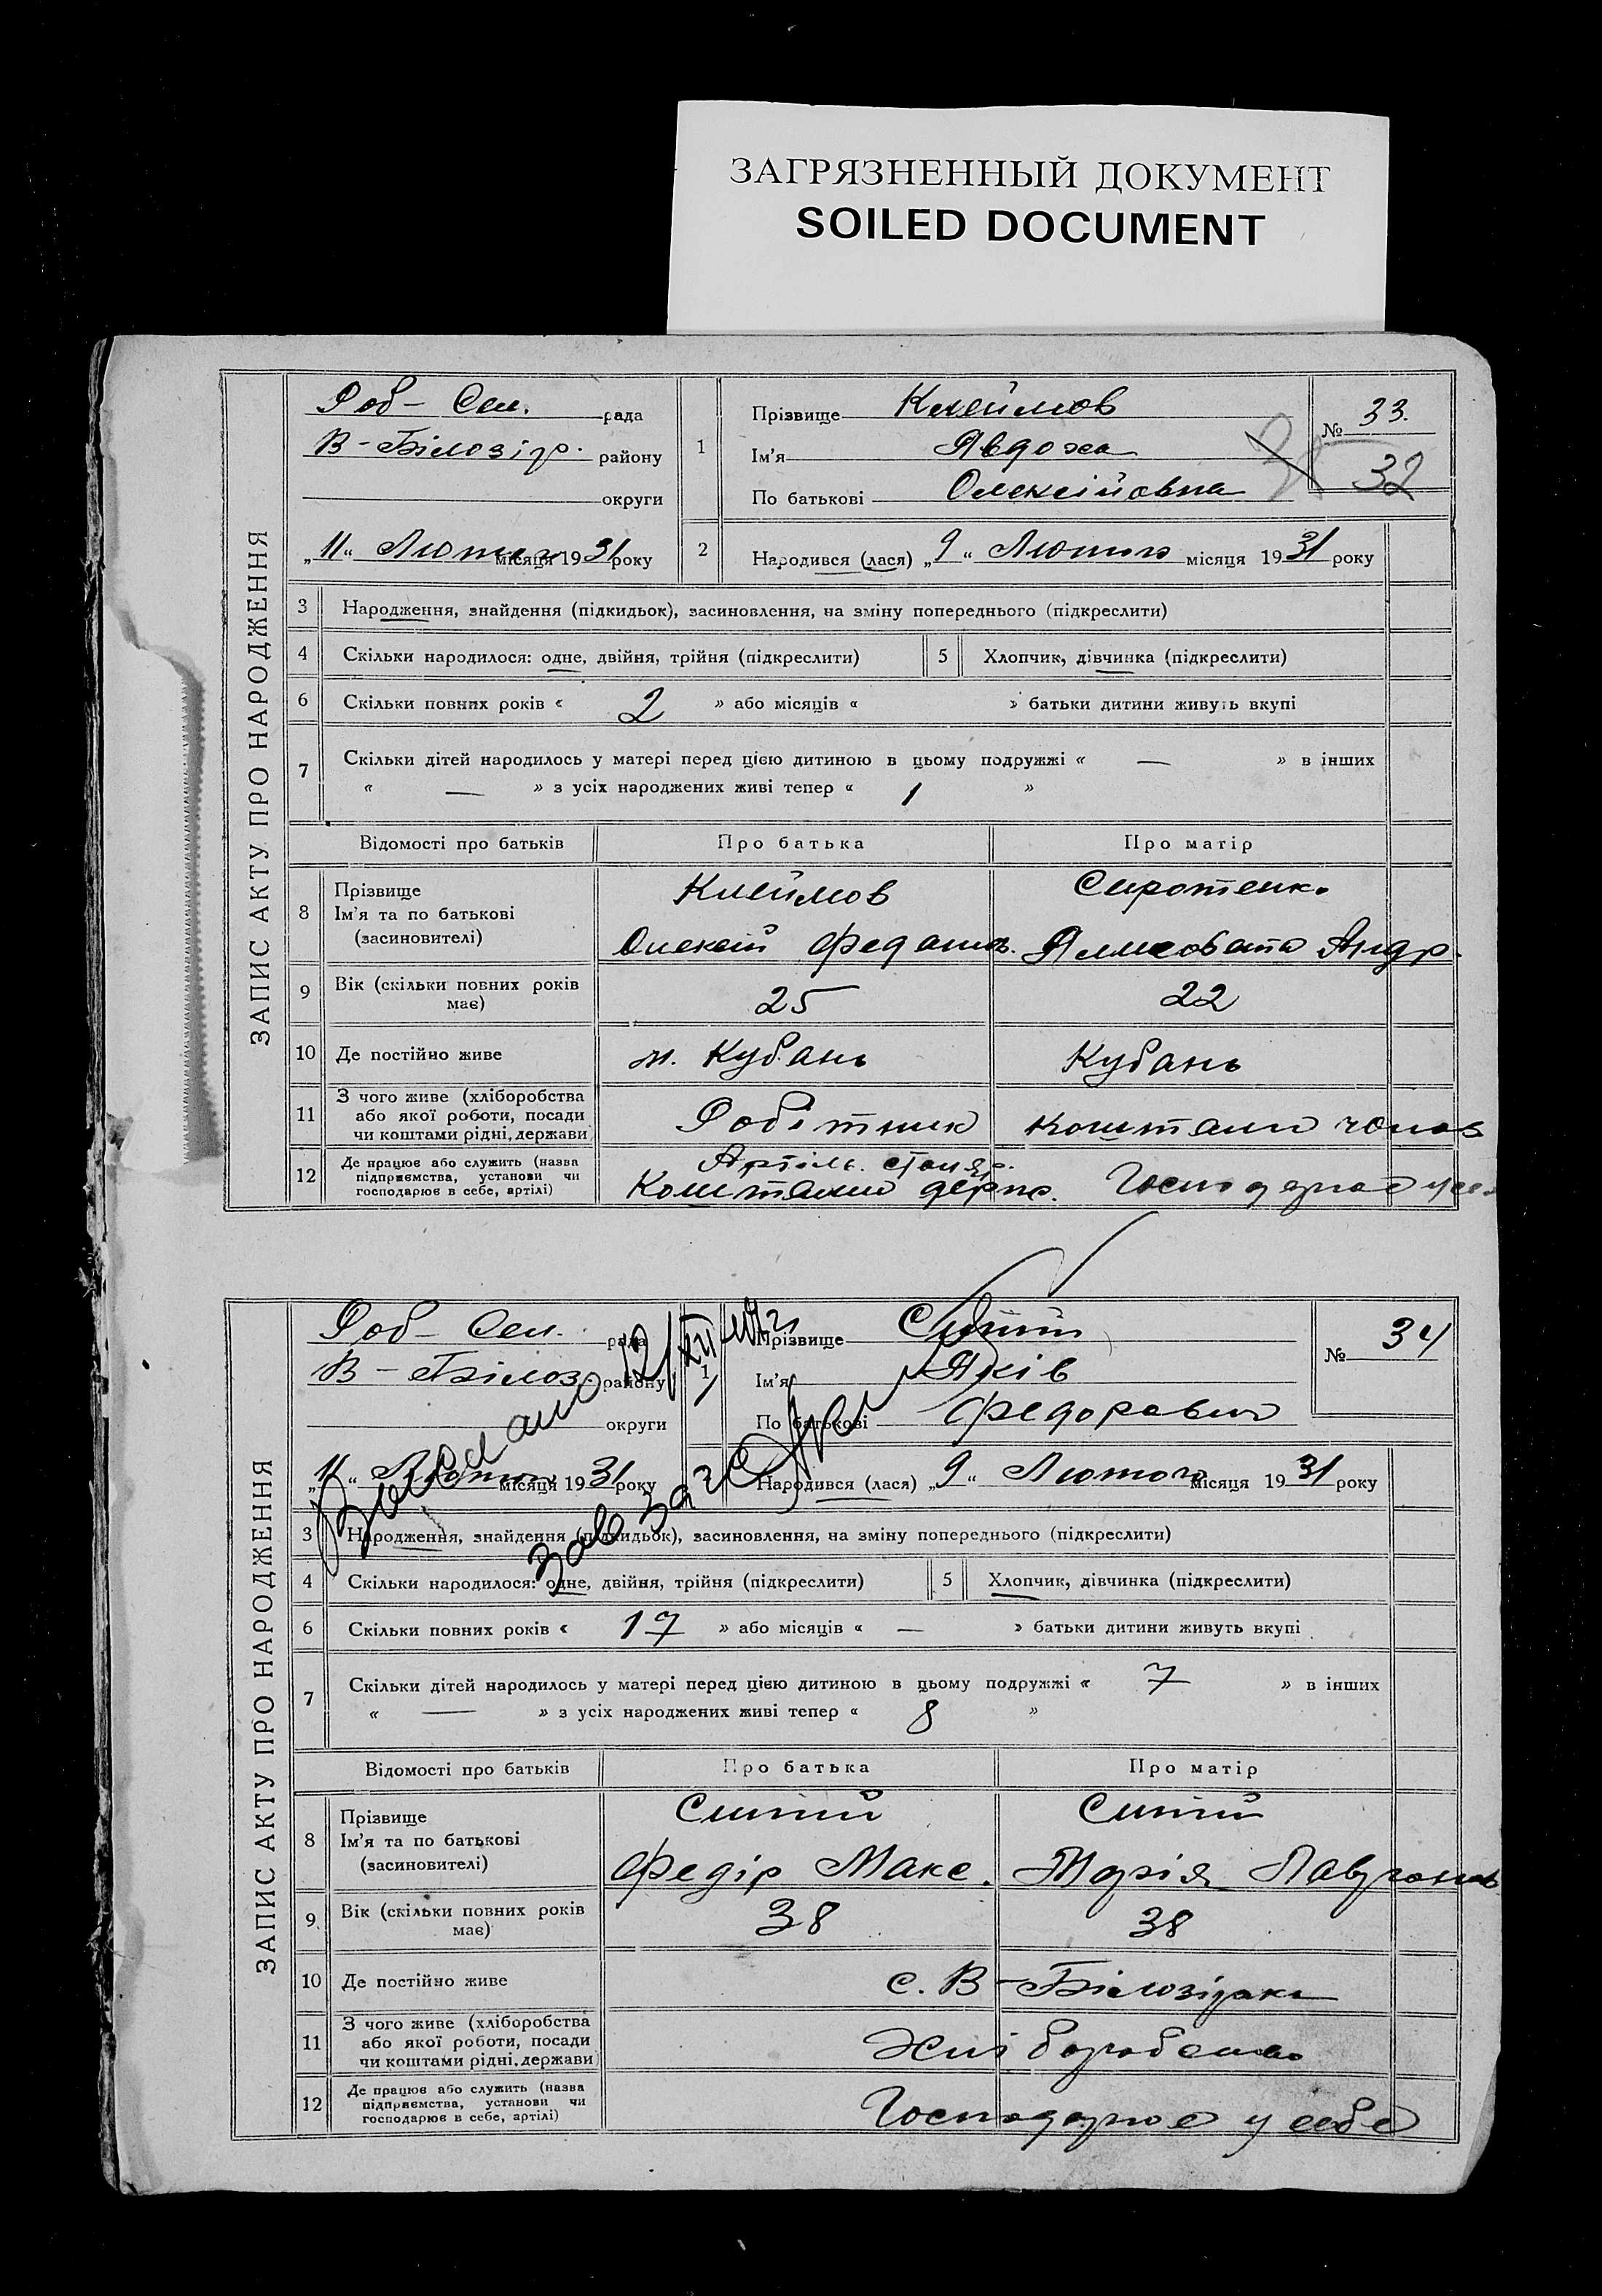 ЗАГРЯЗНЕННЫЙ ДОКУМЕНТ
SOILED DOCUMENT
ЗАПИС АКТУ ПРО НАРОДЖЕННЯ
Роб- Сел. рада
В-Білозір. району
округи
„11“ Лютого місяця 1931 року
1
Прізвище Клеймов
Ім'я Явдоха
По батькові Олексіївна
№ 33.
32
2 Народився (лася) „9“ Лютого місяця 1931 року
3 Народження, знайдення (підкидьок), засиновлення, на зміну попереднього (підкреслити)
4 Скільки народилося: одне, двійня, трійня (підкреслити) 5 Хлопчик, дівчинка (підкреслити)
6 Скільки повних років « 2 » або місяців « » батьки дитини живуть вкупі
7 Скільки дітей народилось у матері перед цією дитиною в цьому подружжі « — » в інших
« — » з усіх народжених живі тепер « 1 »
Відомості про батьків Про батька Про матір
8 Прізвище
Ім'я та по батькові
(засиновителі)
Клеймов
Олексій
Сиротенко
Андр.
9 Вік (скільки повних років
має)
25 22
10 Де постійно живе м. Кубань Кубань
11 З чого живе (хліборобства
або якої роботи, посади
чи коштами рідні, держави)
Робітник коштами чолов
12 Де працює або служить (назва
підприємства, установи чи
господарює в себе, артілі)
Артіль. столяр.
Коштами держ. Господарює у се
ЗАПИС АКТУ ПРО НАРОДЖЕННЯ
Роб- Сел. рада
В-Білоз. району
округи
„11“ Лютого місяця 1931 року
1
Прізвище Синій
Ім'я Яків
По батькові Федорович
№ 34
2 Народився (лася) „9“ Лютого місяця 1931 року
3 Народження, знайдення (підкидьок), засиновлення, на зміну попереднього (підкреслити)
4 Скільки народилося: одне, двійня, трійня (підкреслити) 5 Хлопчик, дівчинка (підкреслити)
6 Скільки повних років « 17 » або місяців « — » батьки дитини живуть вкупі
7 Скільки дітей народилось у матері перед цією дитиною в цьому подружжі « 7 » в інших
« — » з усіх народжених живі тепер « 8 »
Відомості про батьків Про батька Про матір
8 Прізвище
Ім'я та по батькові
(засиновителі)
Синій
Федір Макс.
Синій
Марія
9 Вік (скільки повних років
має)
38 38
10 Де постійно живе с. В-Білозірка
11 З чого живе (хліборобства
або якої роботи, посади
чи коштами рідні, держави)
Хліборобство
12 Де працює або служить (назва
підприємства, установи чи
господарює в себе, артілі)
Господарює у себе